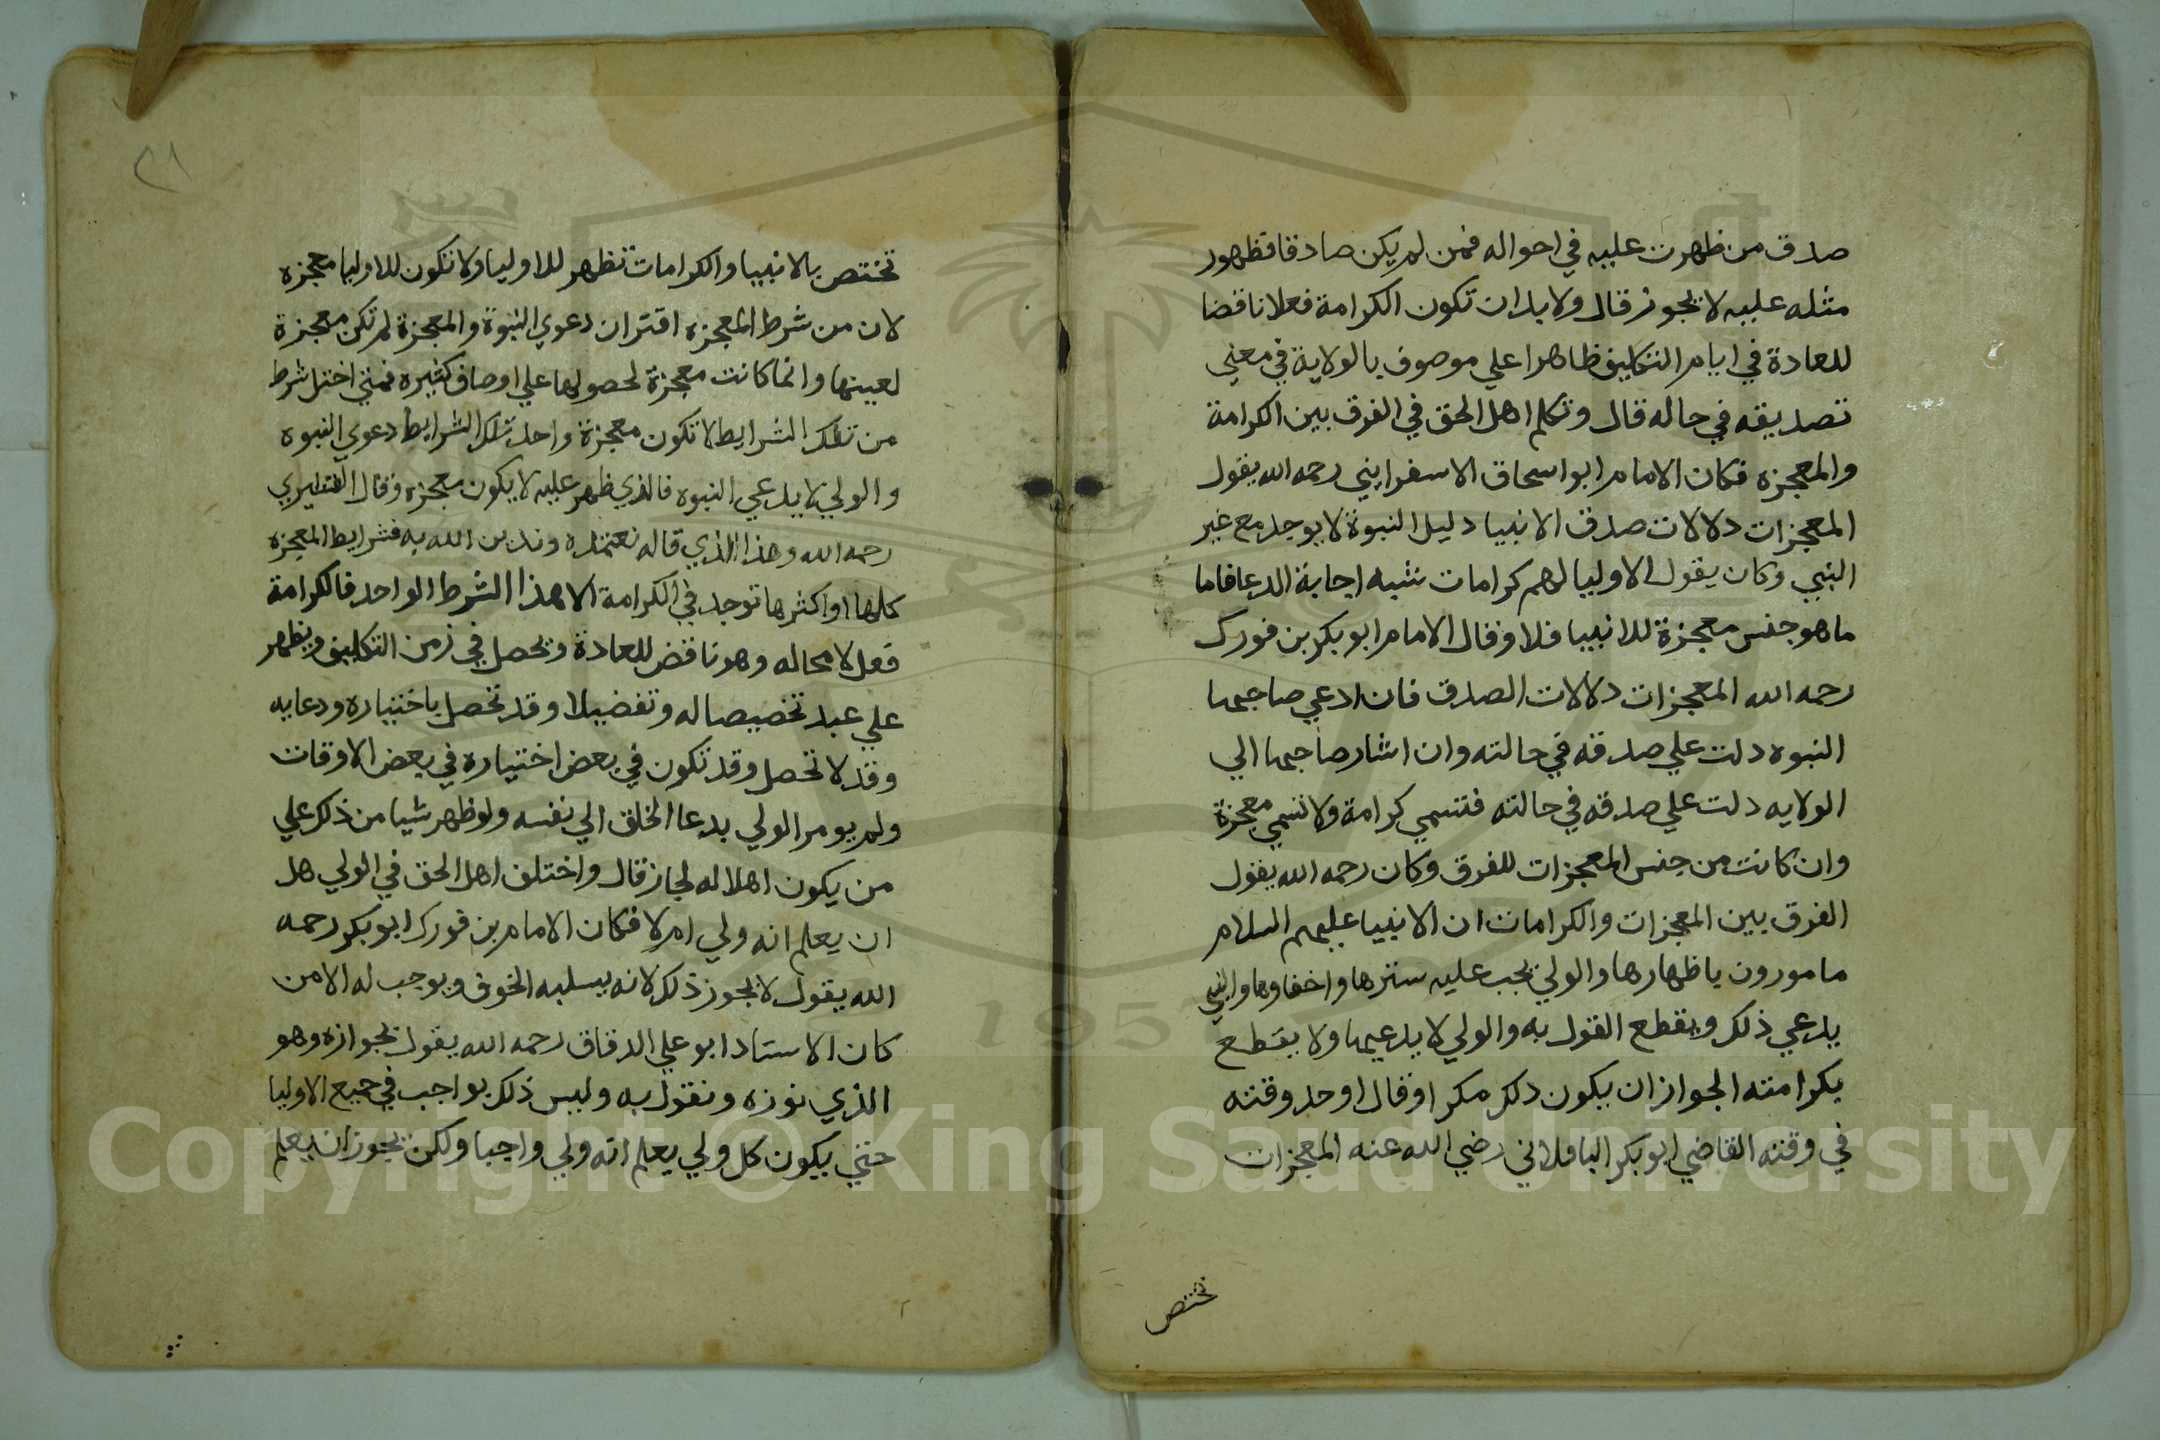 صدق من ظهرت عليه في احواله فمن لم يكن صادقا فظهور
مثله عليه لا يجوز قال ولا بد ان تكون الكرامة فعلا ناقضا
للعادة في ايام التكليف ظاهرا علي موصوف بالولاية في معني
تصديقه في حاله قال وتكلم اهل الحق في الفرق بين الكرامة
والمعجزه فكان الامام ابو اسحاق الاسفرايني رحمه الله يقول
المعجزات دلالات صدق الانبيا دليل النبوة لا يوجد مع غير
النبي وكان يقول الاوليا لهم كرامات شبه اجابة الدعا فاما
ما هو جنس معجزة للانبيا فلا وقال الامام ابو بكر بن فورك
رحمه الله المعجزات دلالات الصدق فان ادعي صاحبها
النبوه دلت علي صدقه في حالته وان اشار صاحبها الي
الولايه دلت علي صدقه في حالته فتسمي كرامة ولا تسمي معجزة
وان كانت من جنس المعجزات للفرق وكان رحمه الله يقول
الفرق بين المعجزات والكرامات ان الانبيا عليهم السلام
مامورون باظهارها والولي يجب عليه سترها واخفاوها والنبي
يدعي ذلك ويقطع القول به والولي لا يدعيها ولا يقطع
بكرامته الجواز ان يكون دلك مكرا وقال اوحد وقته
في وقته القاضي ابو بكر الباقلاني رضي الله عنه المعجزات
تختص
٢١
تختص بالانبيا والكرامات تظهر للاوليا ولا تكون للاوليا معجزه
لان من شرط المعجزه اقتران دعوي النبوة والمعجزة لم تكن معجزة
لعينها وانما كانت معجزة لحصولها علي اوصاف كثيره فمتي اختل شرط
من تلك الشرايط لا تكون معجزة واحد تلك الشرايط دعوي النبوه
والولي لا يدعي النبوه فالذي ظهر عليه لا يكون معجزه وقال القشيري
رحمه الله وهذا الذي قاله نعتمده وندين الله به فشرايط المعجزه
كلها او اكثرها توجد في الكرامة الا هذا الشرط الواحد فالكرامة
فعل لا محاله وهو ناقض للعادة وتحصل في زمن التكليف ويظهر
علي عبد تخصيصا له وتفضيلا وقد تحصل باختياره ودعايه
وقد لا تحصل وقد تكون في بعض اختياره في بعض الاوقات
ولم يومر الولي بدعا الخلق الي نفسه ولو ظهر شيا من ذلك علي
من يكون اهلا له لجاز قال واختلف اهل الحق في الولي هل
ان يعلم انه ولي ام لا فكان الامام بن فورك ابو بكر رحمه
الله يقول لا يجوز ذلك لانه يسلبه الخوف ويوجب له الامن
كان الاستاد ابو علي الدقاق رحمه الله يقول بجوازه وهو
الذي نوزه ونقول به وليس ذلك بواجب في جميع الاوليا
حتي يكون كل ولي يعلم انه ولي واجبا ولكن يجوز ان يعلم
1957
Copyright © King Saud University